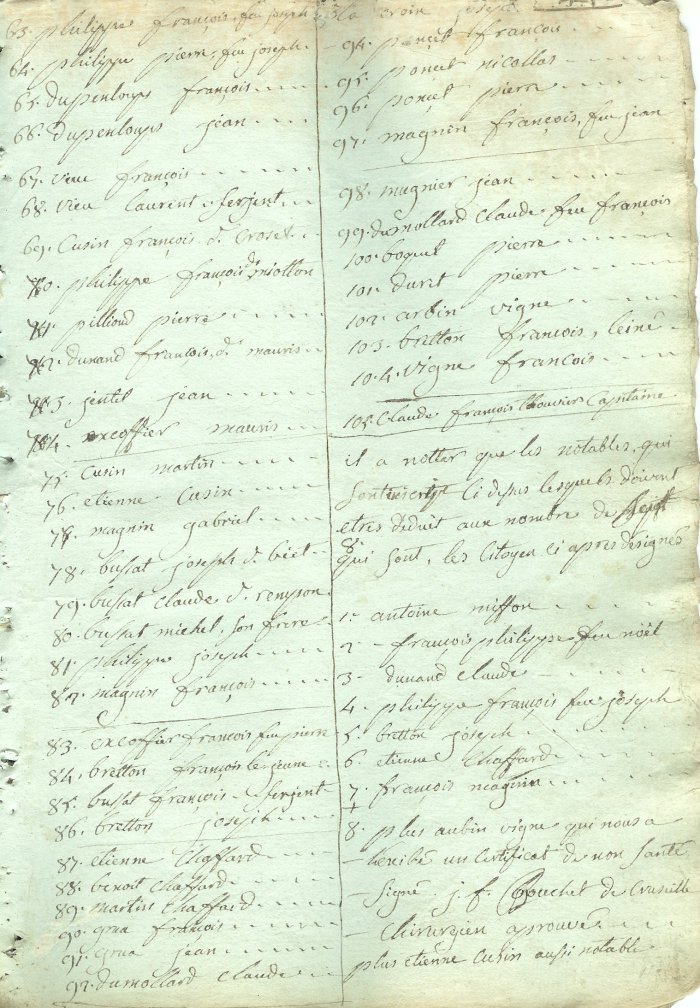 63. philippe françois, feu joseph
64. philippe pierre, feu joseph
65. dupenloups françois
66. dupenloups jean
67. vieu françois
68. vieu laurent serjent
69. Cusin françois d. Croset
70. philippe françois d.
71. pillioud pierre
72. dunand francois, d. mauris
73. jentil jean
74. excoffier mauris
75. Cusin martin
76. etienne Cusin
77. magnin gabriel
78. bussat joseph d.
79. bussat Claude d.
80. bussat michel, son frere
81. philippe joseph
82. magnin françois
83. excoffier françois feu pierre
84. bretton françois le jeune
85. bussat françois serjent
86. bretton joseph
87. etienne Chaffard
88. benoit Chaffard
89. martin Chaffard
90. grua françois
91. grua jean
92. dumollard Claude
la croix joseph
94. poncet francois
95. poncet nicollas
96. poncet pierre
97. magnin françois, feu jean
98. magnier jean
99. dumollard Claude feu françois
100. boquet pierre
101. duret pierre
102. arbin vigne
103. bretton françois, leinè
104. vigne francois
105. Claude françois Capitaine
il a notter que les notables, qui
sont inscript ci desus lesquels doivent
etres deduit aux nombre de sept
8.
qui sont, les Citoyen ci apres désignés
1. antoine
2. francois philippe feu noël
3. dunand Claude
4. philippe françois feu joseph
5. bretton joseph
6. etienne Chaffard
7. françois magnin
8. plus aubin vigne qui nous a
un Certificat de non Santé
signé j. f. Bouchet de Cruseille
Chirurgien aprouvés
plus etienne Cusin aussi notable